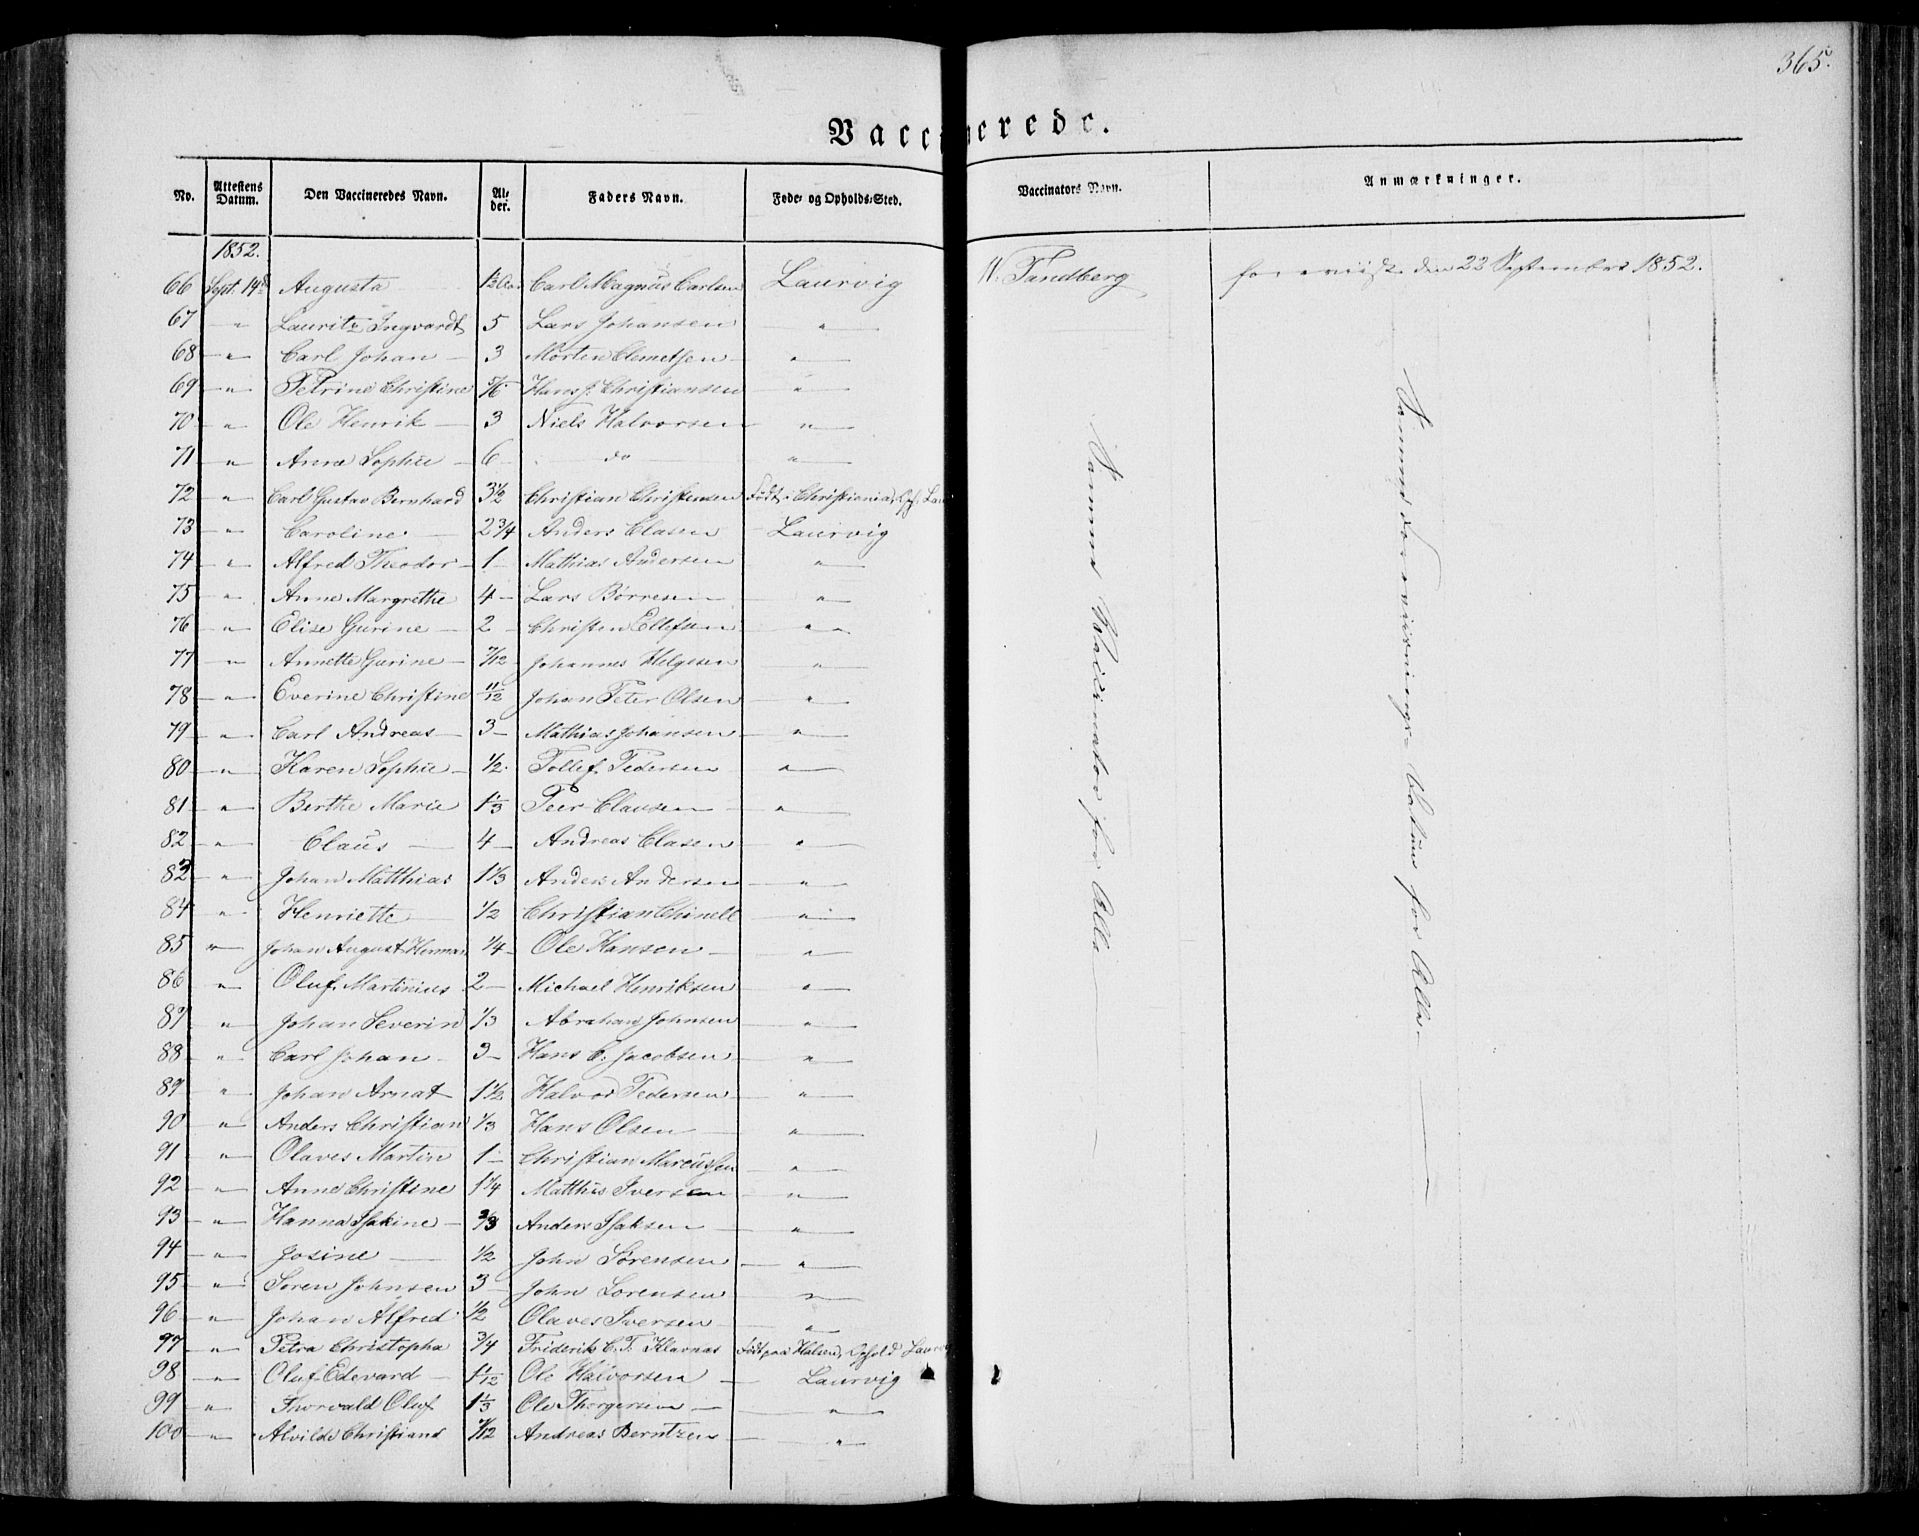 365.
Vaccinerede.
No. Attestens Datum. Den Vaccineredes Navn. Alder. Faders Navn. Føde- og Opholds-Sted. Vaccinators Navn. Anmærkninger.
1852.
66 Sept. 14d Augusta 1½ Carl Magnus Carlsen Laurvig Tandberg foreviist den 22 September 1852.
67 " Lauritz Ingvardt 5 Lars Johansen "
68 " Carl Johan 3 Morten Clemetsen "
69 " Petrine Christine 5/6 Hans J. Christiansen "
70 " Ole Henrik 3 Niels Halvorsen "
71 " Anne Sophie 6 do "
72 " Carl Gustav Bernhard 3½ Christian Christensen Født i Christiania, Oph. Lau
73 " Caroline 2¾ Anders Clasen Laurvig
74 " Alfred Theodor 1 Mathias Andersen "
75 " Anne Margrethe 4 Lars Børresen "
76 " Elise Gurine 2 Christen Ellefsen "
77 " Annette Gurine 7/12 Johannes Helgesen "
78 " Everine Christine 11/12 Johan Peter Olsen "
79 " Carl Andreas 3 Mathias Johansen "
80 " Karen Sophie ½ Tollef Pedersen "
81 " Berthe Marie 1⅓ Peer Clausen "
82 " Claus 4 Andreas Clasen "
83 " Johan Matthias 1⅓ Anders Andersen "
84 " Henriette ½ Christian Chinell "
85 " Johan August Herman ¼ Ole Hansen "
86 " Oluf Martinius 2 Michael Henriksen "
87 " Johan Severin ⅓ Abraham Johnsen "
88 " Carl Johan 3 Hans C. Jacobsen "
89 " Johan Arnat 1½ Halvor Pedersen "
90 " Anders Christian ⅓ Hans Olsen "
91 " Olaves Martin 1 Christian Marcussen "
92 " Anne Christine 1¼ Matthis Iversen "
93 " Hanna Isakine ⅔ Anders Isaksen "
94 " Josine ½ John Sørensen "
95 " Søren Johnsen 3 John Sørensen "
96 " Johan Alfred ½ Olaves Iversen "
97 " Petra Christopha ¾ Friderik C. T. Klavnas Født paa Halsen, Ophold Laurvi
98 " Oluf Edevard 1 1/12 Ole Halvorsen Laurvig
99 " Thorvald Oluf 1⅓ Ole Thorgersen "
100 " Alvilde Christiane 7/12 Andreas Berntzen "
Samme Vaccinator for Alle
Samme Foreviisnings-Datum for Alle